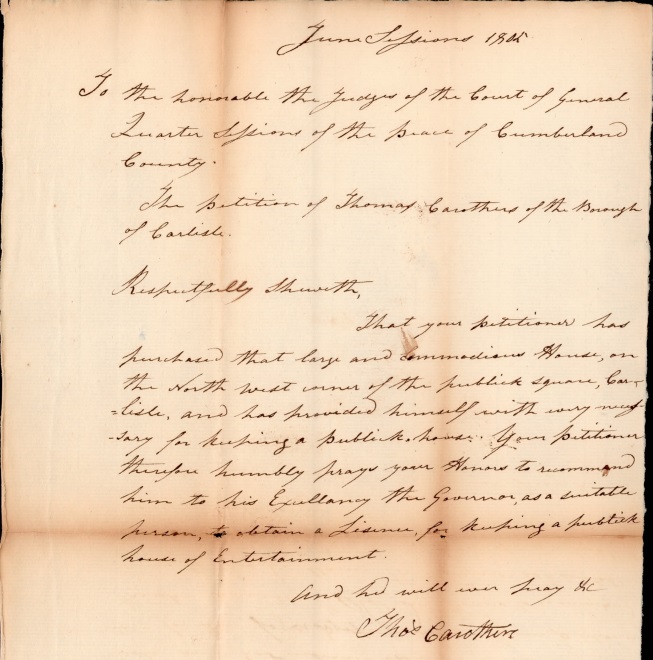 June Sessions 1805
To the honorable the Judges of the Court of General
Quarter Sessions of the peace of Cumberland
County.
The petition of Thomas Carothers of the Borough
of Carlisle.
Respectfully Sheweth,
That your petitioner has
purchased that large and commodious House, on
the North west corner of the publick square, Car-
-lisle, and has provided himself with every neces-
-sary for keeping a publick house. Your petitioner
therefore humbly prays your Honors to recommend
him to his Excellancy the Governor, as a suitable
person, to obtain a Lisence, for keeping a publick
house of Entertainment.
And he will ever pray &c
Thos Carothers